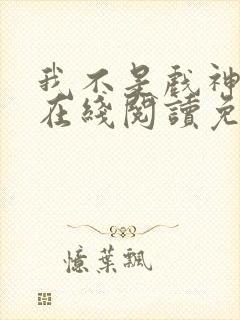 我不是戲神
在綫閱讀免
憶葉飄